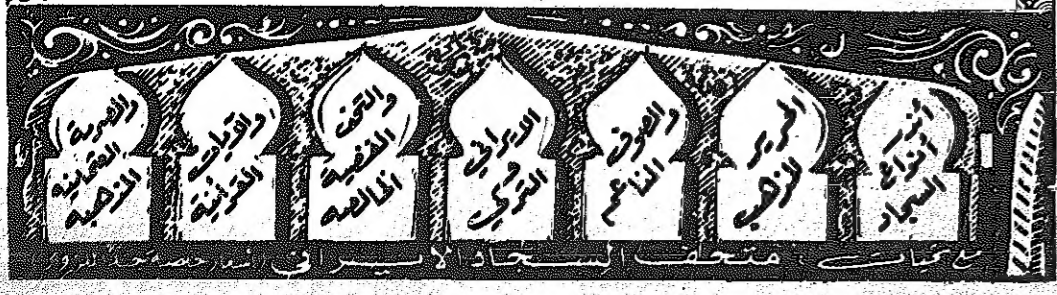 أندر
أنواع
السجاد
الحرير
المذهب
والصوف
الناعم
الايراني
و
التركي
والتحف
الفضية
الخالصه
والآيات
القرآنية
العثمانيه
المذهبيه
مع تحيات : متحف السجاد الايراني